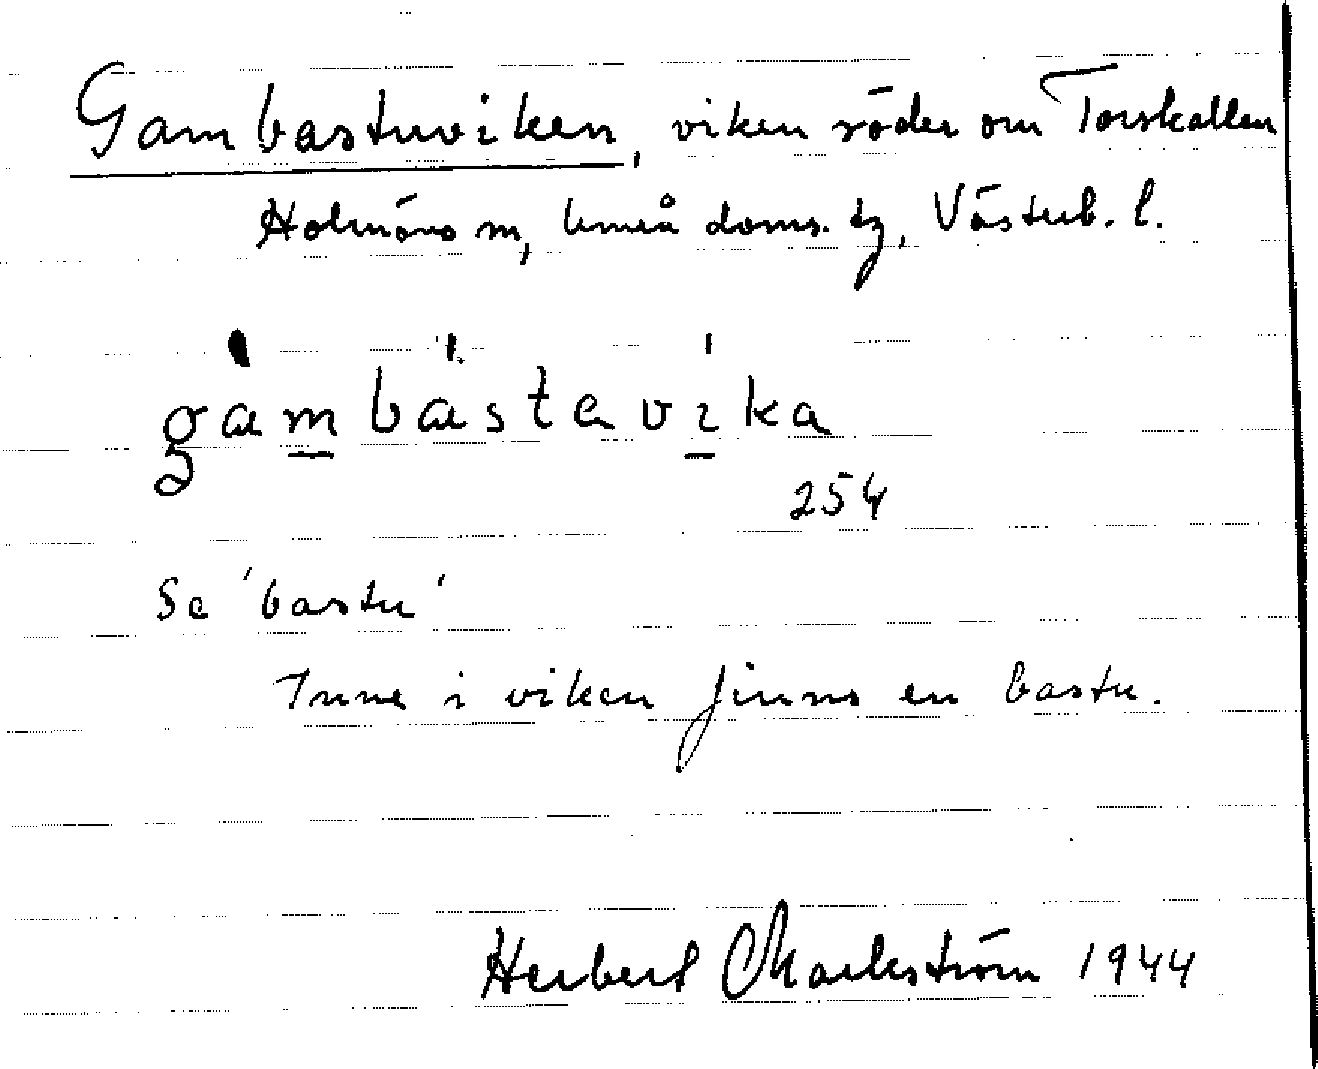 Gambastuviken, viken söder om Torskallen
Holmöns sn, Umeå doms. tg, Västerb. l.
gàmbàstavika
254
Se 'bastu'
Inne i viken finns en bastu.
Herbert Markström 1944